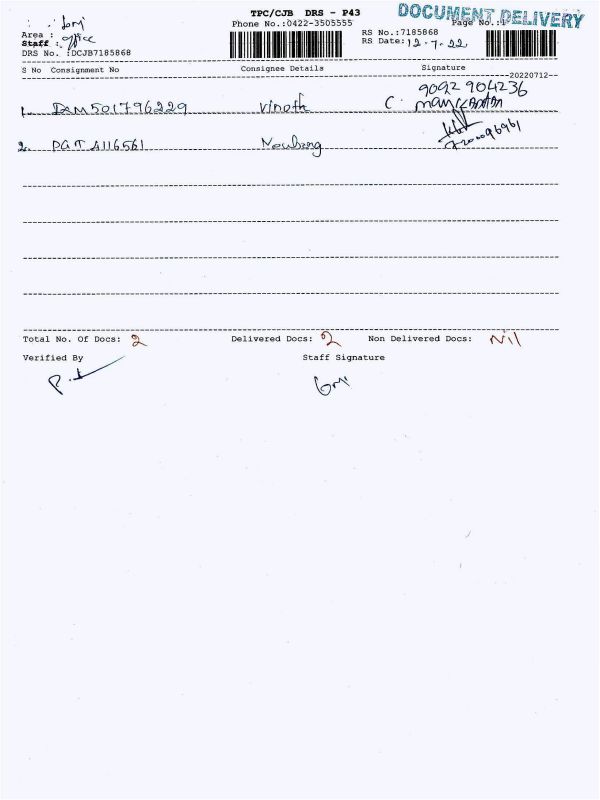 TPC/CJB DRS - P43
DOCUMENT DELIVERY
Phone No.:0422-3505555
Page No.:1
Area : office
Staff :
DRS No. :DCJB7185868
RS No.:7185868
RS Date: 12-7-22
S No Consignment No Consignee Details Signature
20220712
9092904236
1. Vinoth C. manikandan
2. 
Total No. Of Docs: 2 Delivered Docs: 2 Non Delivered Docs: Nil
Verified By Staff Signature